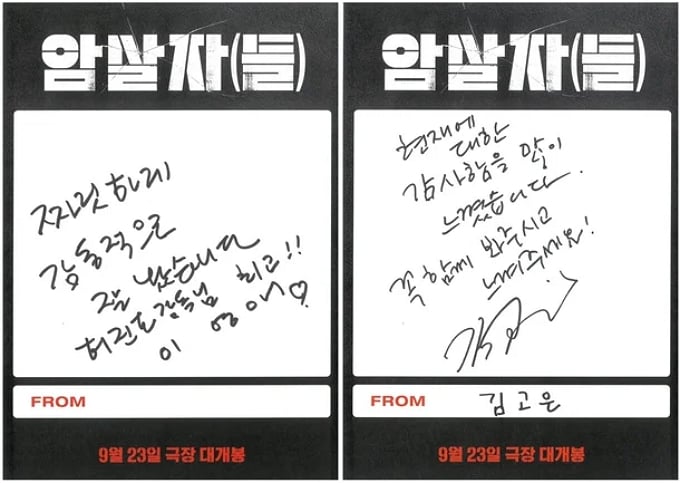 암살자(들)
짜릿하게
감동적으로
잘 봤습니다
허진호 감독님 최고!!
이영애♡
FROM
9월 23일 극장 대개봉
암살자(들)
현재에
대한
감사함을 많이
느꼈습니다.
꼭 함께 봐주시고
느껴주세요!
FROM 김고은
9월 23일 극장 대개봉